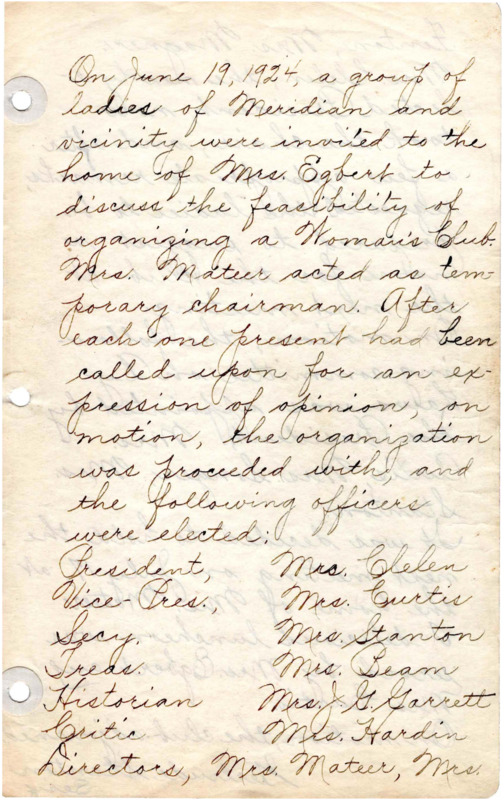 On June 19, 1924, a group of
ladies of Meridian and
vicinity were invited to the
home of Mrs. Egbert to
discuss the feasibility of
organizing a Woman's Club.
Mrs. Mateer acted as tem-
porary chairman. After
each one present had been
called upon for an ex-
pression of opinion, on
motion, the organization
was proceeded with, and
the following officers
were elected:
President, Mrs. Clelen
Vice-Pres., Mrs. Curtis
Secy. Mrs. Stanton
Treas. Mrs. Beam
Historian Mrs. J. G. Garrett
Critic Mrs. Hardin
Directors, Mrs. Mateer, Mrs.